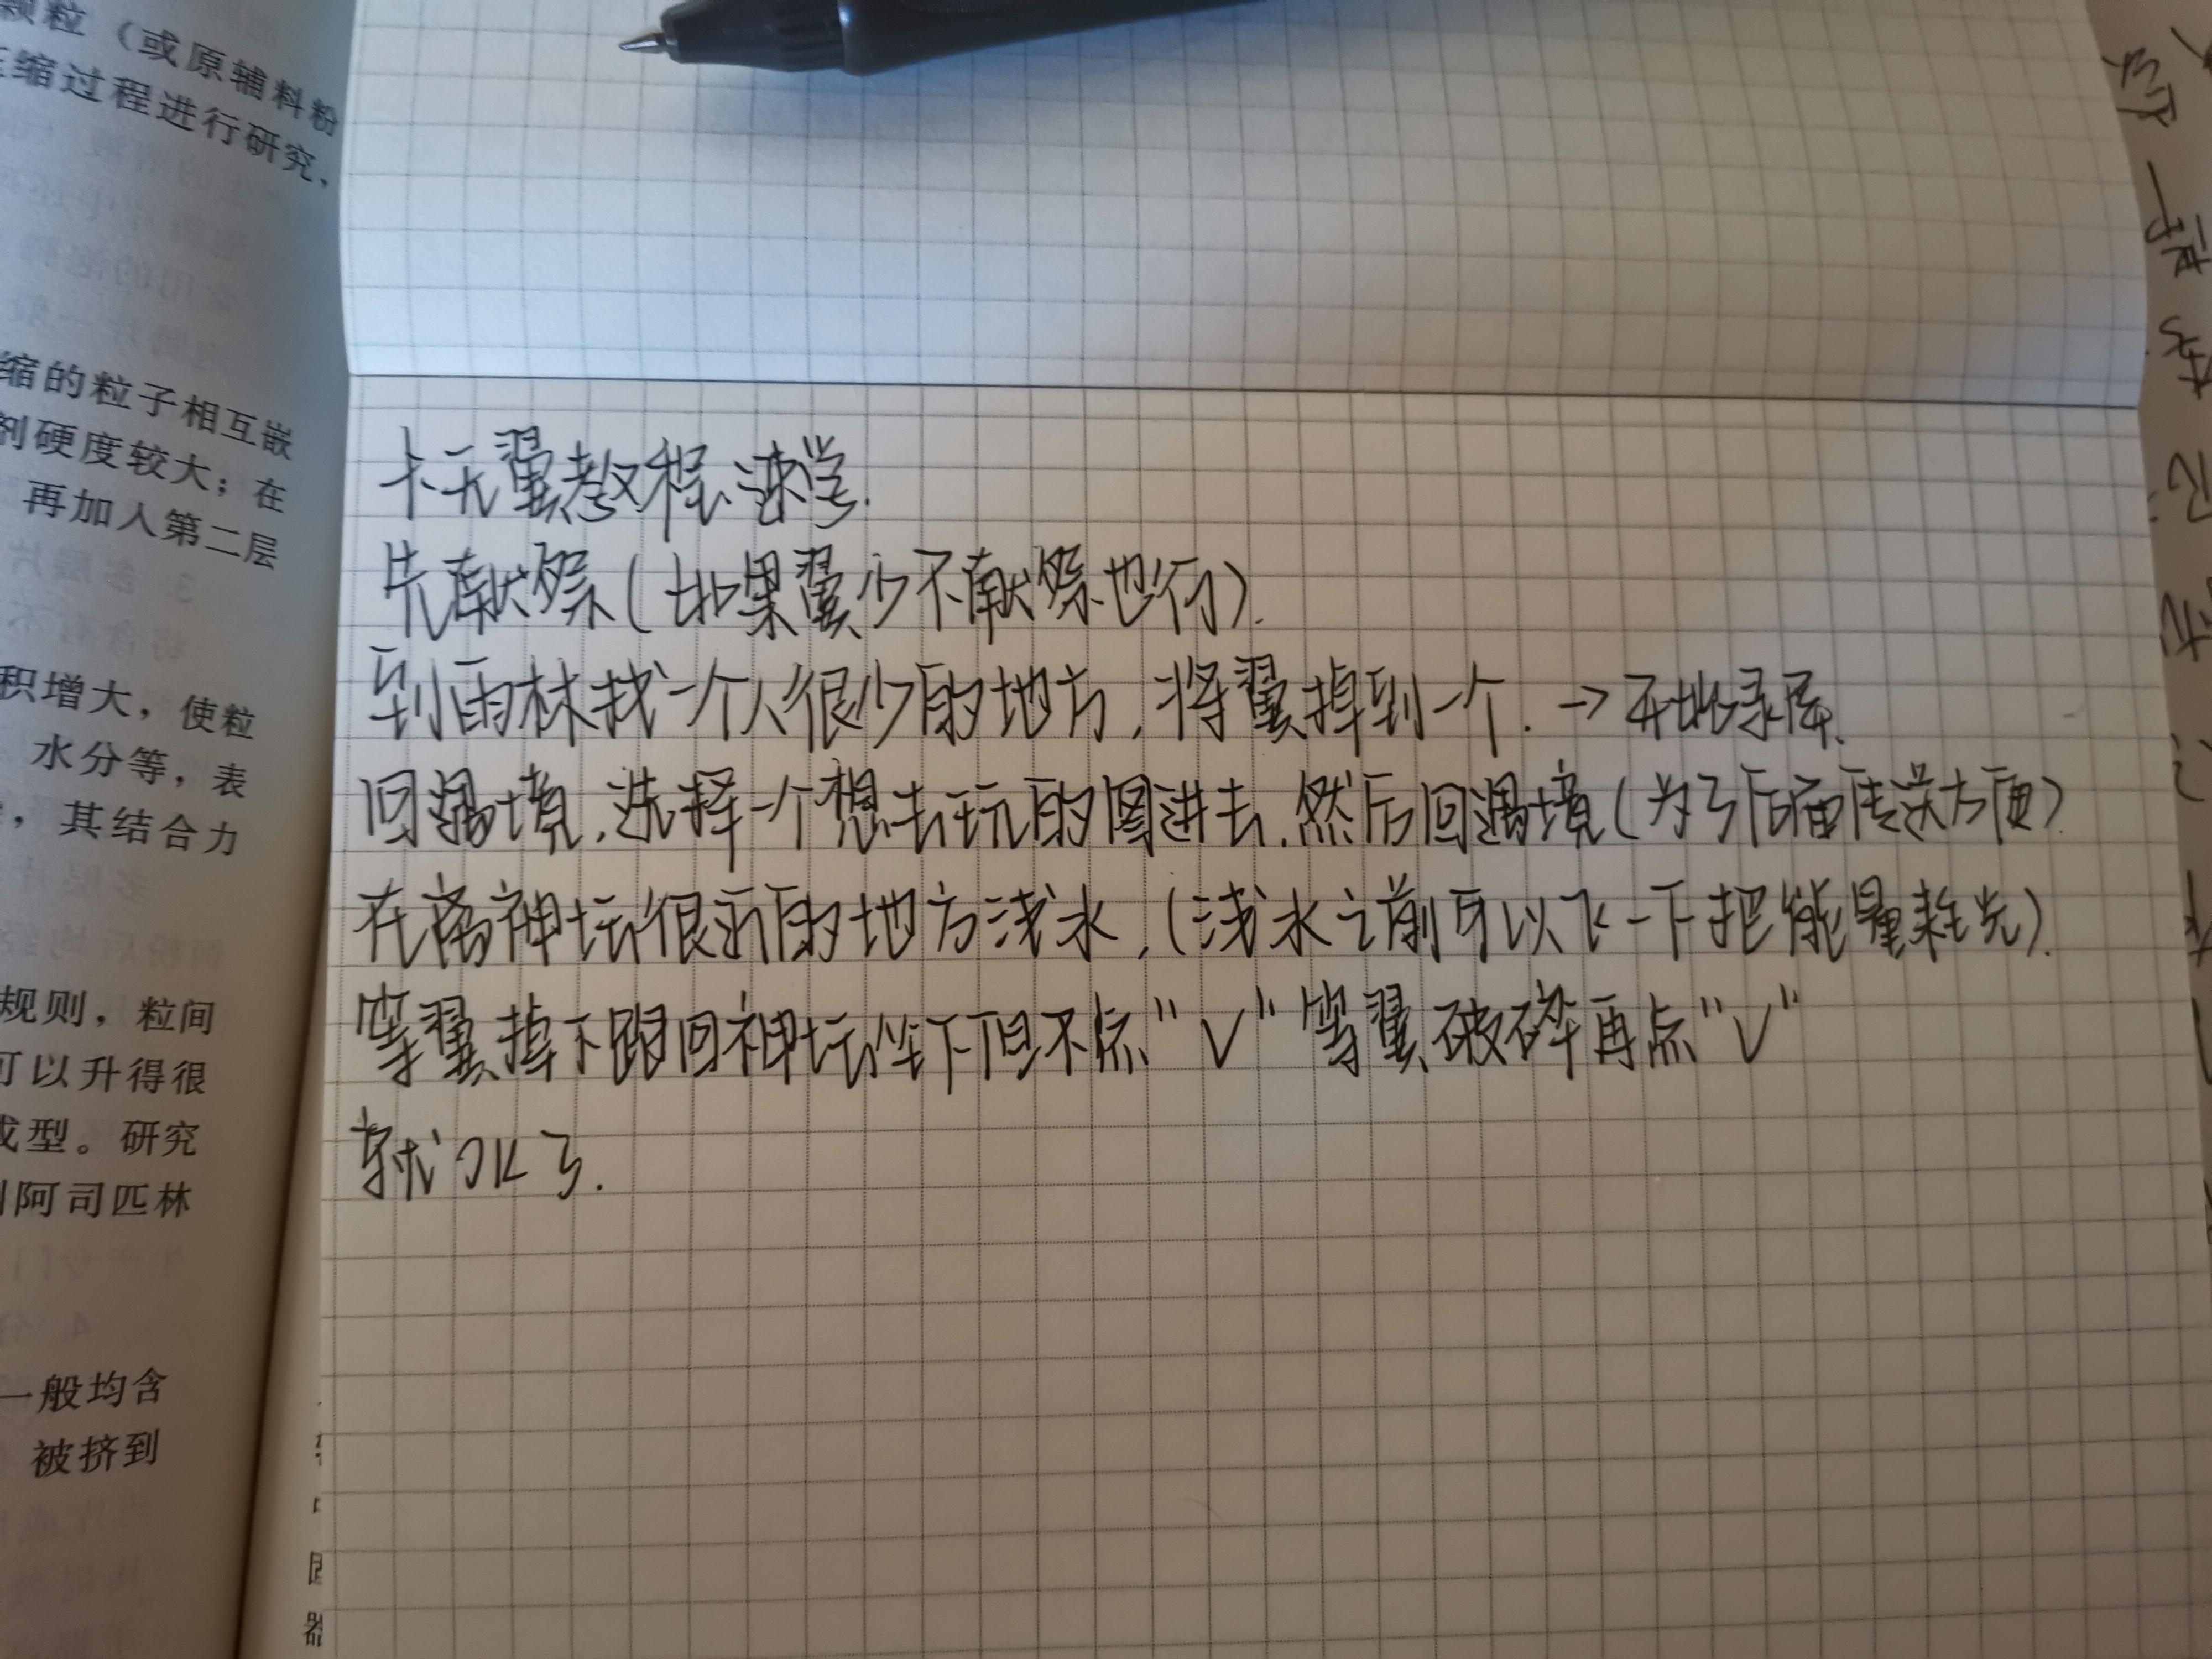 颗粒（或原辅料粉
缩过程进行研究，
缩的粒子相互嵌
剂硬度较大；在
再加入第二层
积增大，使粒
水分等，表
，其结合力
规则，粒间
可以升得很
成型。研究
阿司匹林
一般均含
被挤到
卡无翼教程速学.
先献祭(如果翼少不献祭也行).
到雨林找一个人很少的地方,将翼掉到一个.→开始录屏.
回遇境,选择一个想去玩的图进去,然后回遇境(为了后面传送方便)
在离神坛很近的地方浅水,(浅水之前可以飞一下把能量耗光).
等翼掉下跟回神坛坐下但不点"√"等翼破碎再点"√"
就OK了.